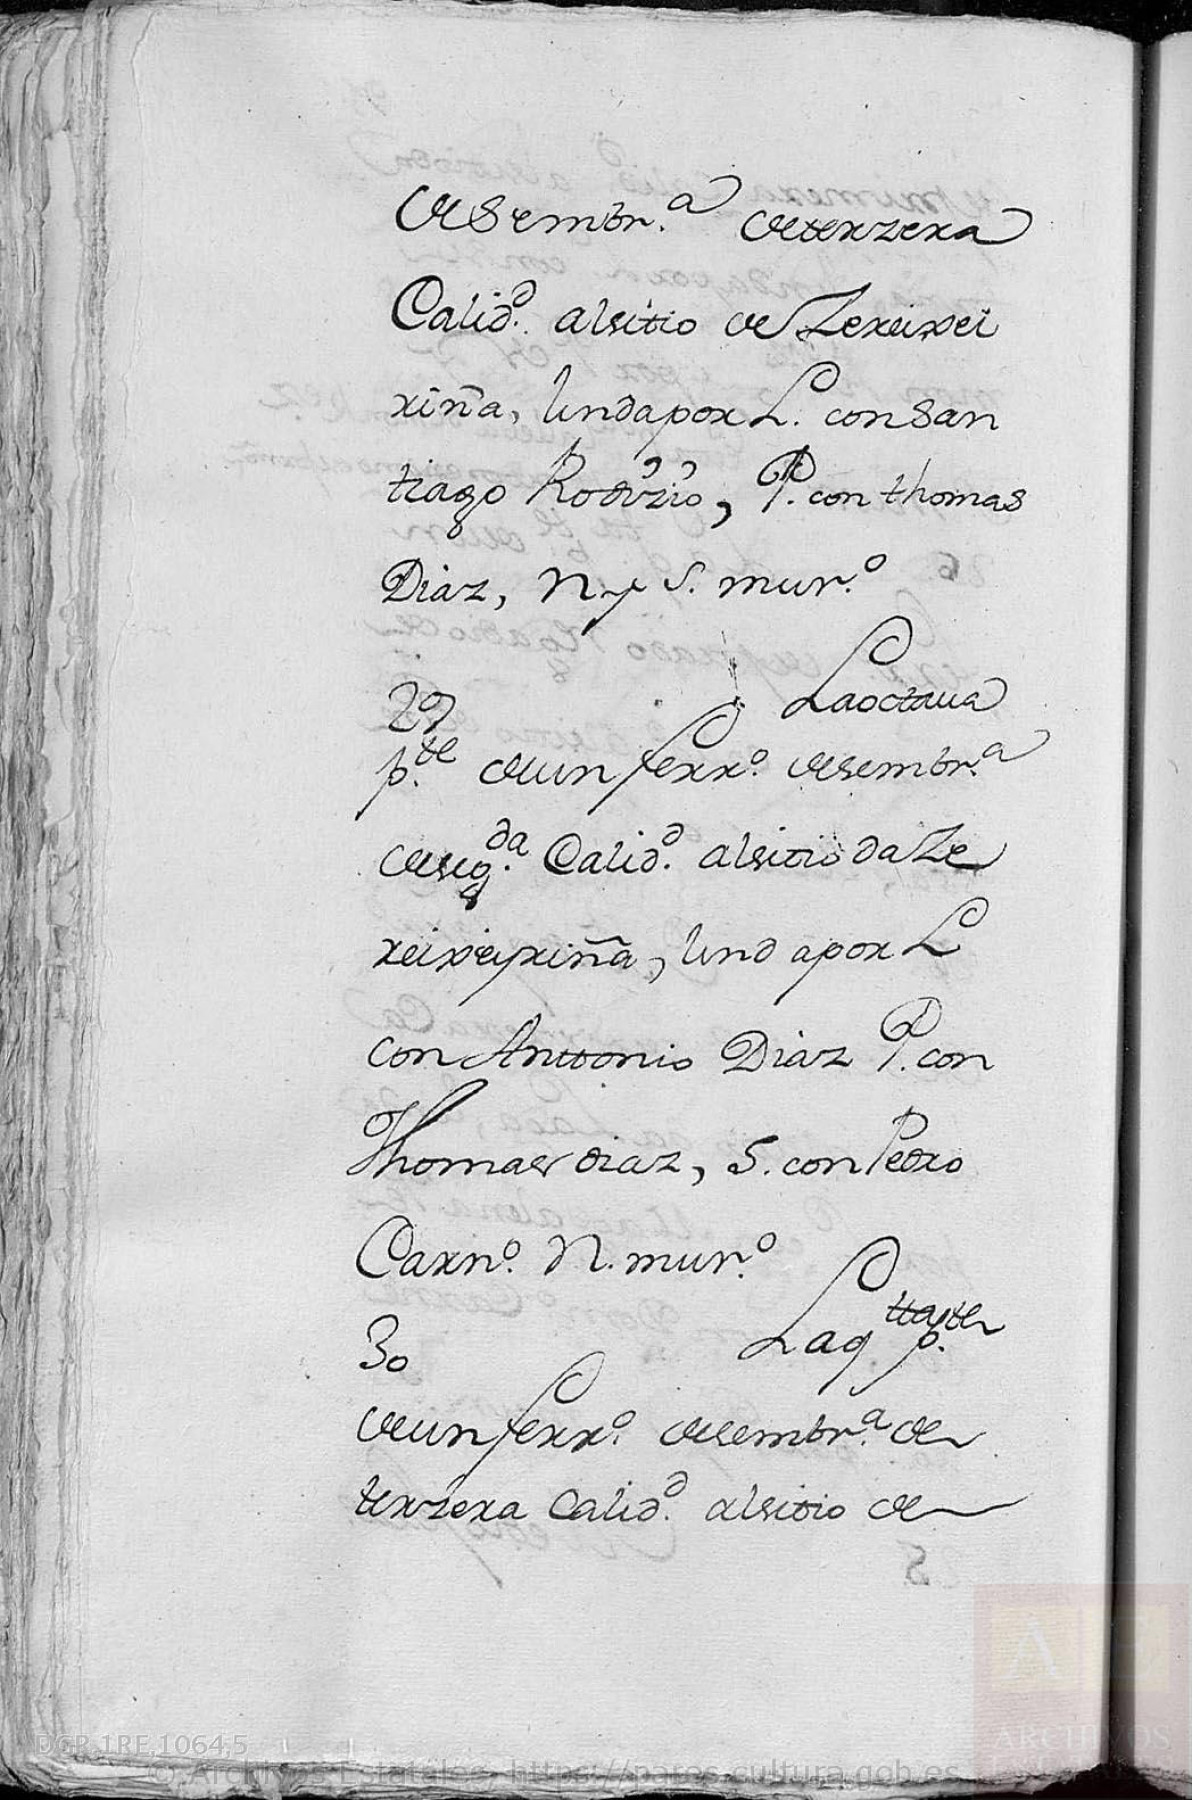 de Sembr.ª de terzera
Calid.d al sitio de Zereixei
riña, linda por L. con San
tiago Rodrz.o, P. con thomas
Diaz, N. y S. mur.o
29 La octaua
p.te de un ferr.o de sembr.a
de seg.da Calid.d al sitio da Ze
reixeyriña, linda por L
con Anttonio Diaz P. con
Thomas diaz, S. con Pedro
Carn.o N. mur.o
30 La q.tta p.te
de un ferr.o de sembr.a de
terzera Calid.d al sitio de
DGR,1RE,1064,5
© Archivos Estatales, https://pares.cultura.gob.es
AE
ARCHIVOS